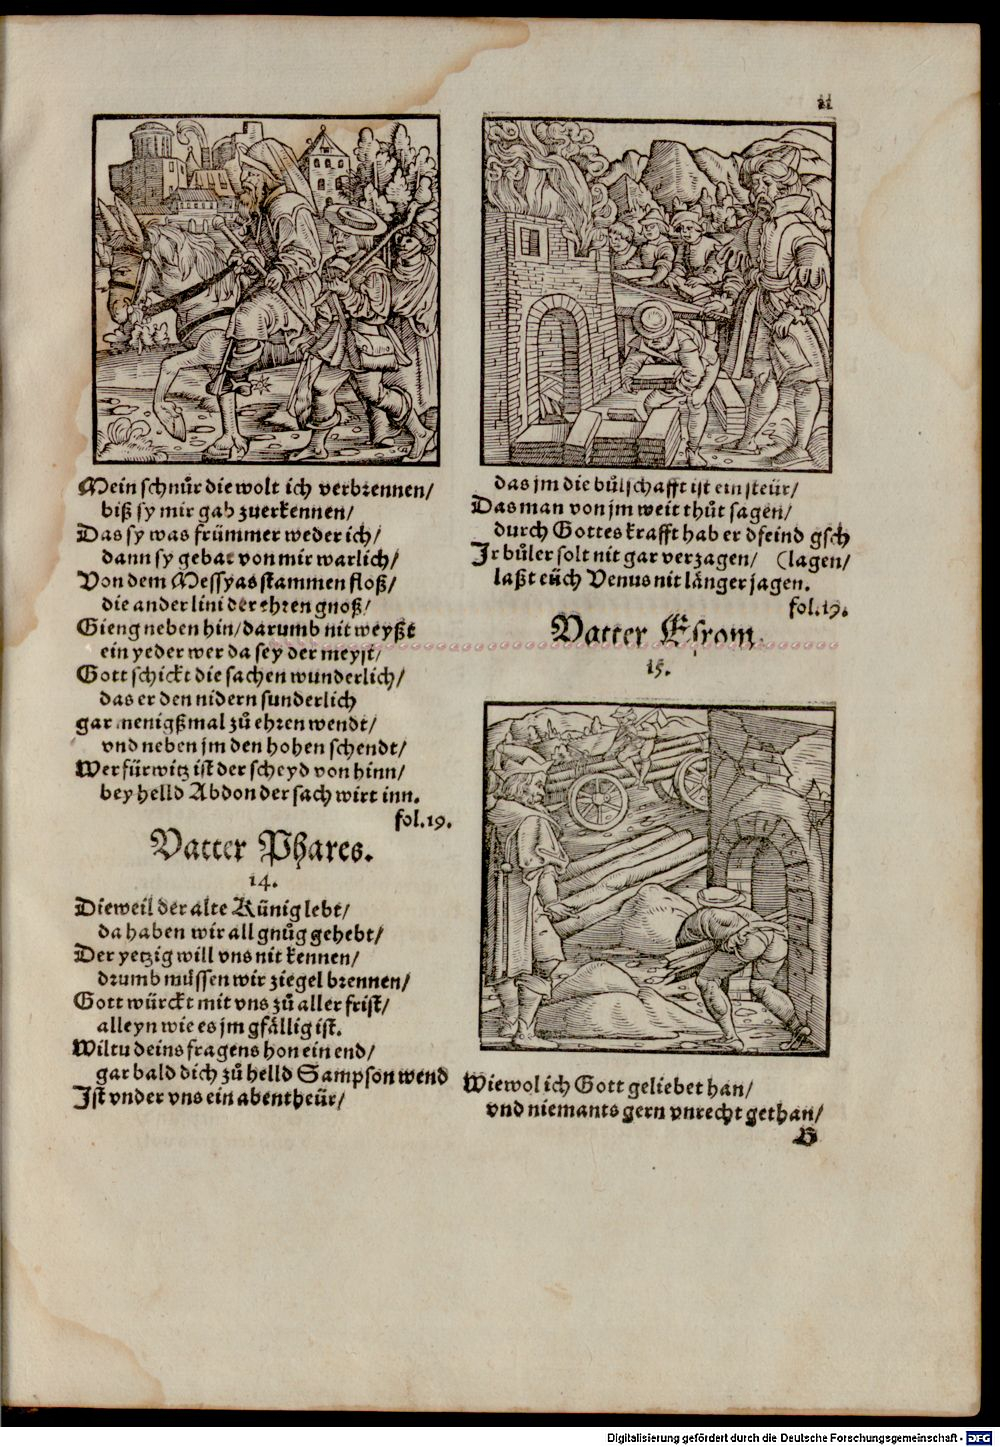 11
Mein schnůr die wolt ich verbrennen/
biß sy mir gab zuerkennen/
Das sy was frümmer weder ich/
dann sy gebar von mir warlich/
Von dem Messyas stammen floß/
die ander lini der ehren gnoß/
Gieng neben hin/ darumb nit weyßt
ein yeder wer da sey der meyst/
Gott schickt die sachen wunderlich/
das er den nidern sunderlich
gar menigßmal zů ehren wendt/
vnd neben jm den hohen schendt/
Wer fürwitz ist der scheyd von hinn/
bey helld Abdon der sach wirt inn.
fol.19.
Vatter Phares.
14.
Dieweil der alte Künig lebt/
da haben wir all gnůg gehebt/
Der yetzig will vns nit kennen/
drumb müssen wir ziegel brennen/
Gott würckt mit vns zů aller frist/
alleyn wie es jm gfällig ist.
Wiltu deins fragens hon ein end/
gar bald dich zů helld Sampson wend
Ist vnder vns ein abentheür/
das jm die bůlschafft ist ein steür/
Das man von jm weit thůt sagen/
durch Gottes krafft hab er dfeind gsch
Ir bůler solt nit gar verzagen/ (lagen/
laßt eüch Venus nit länger jagen.
fol.19.
Vatter Esrom.
15.
Wiewol ich Gott geliebet han/
vnd niemants gern vnrecht gethan/
B
Digitalisierung gefördert durch die Deutsche Forschungsgemeinschaft - DFG